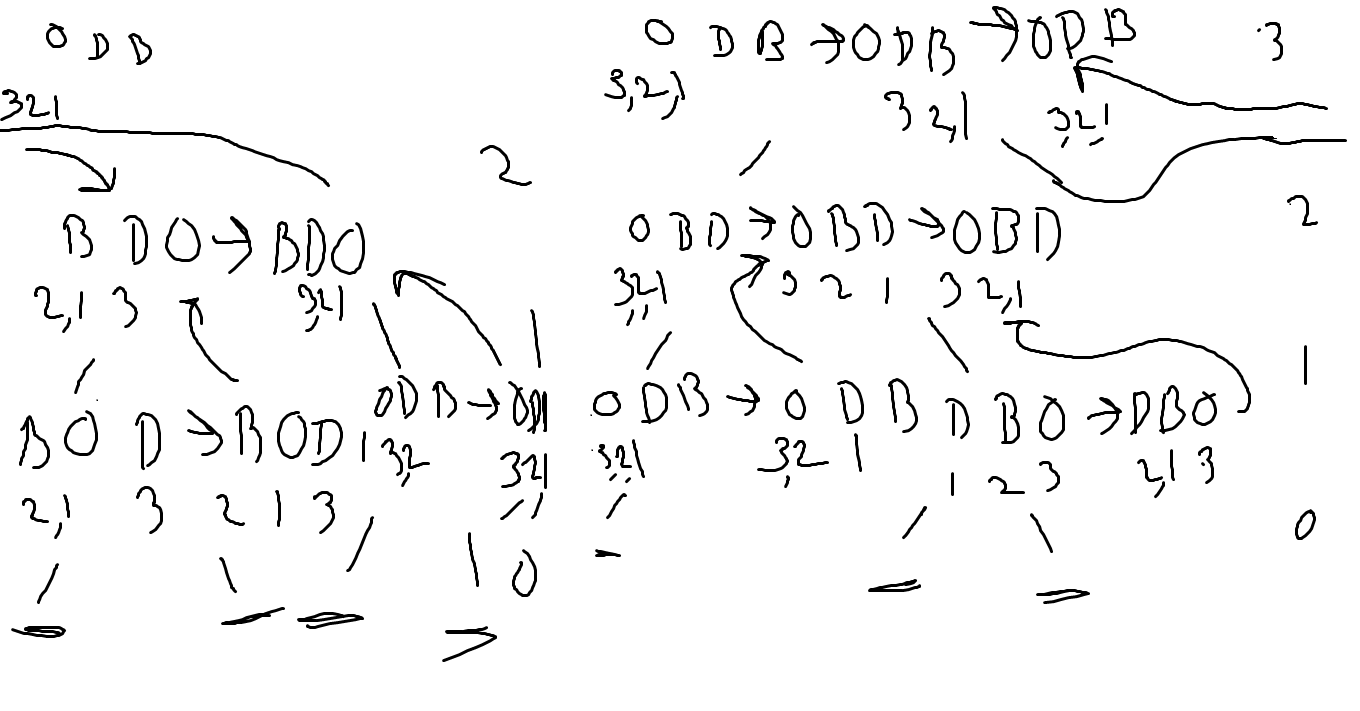 O D B
321
2
B D O → BDO
2,1 3 3,21
B O D → B O D
2,1 3 2 1 3
1
O D B →
3,2 3,21
0
O D B → O D B → O D B 3
3,2,1 3 2,1 3,2,1
O B D → O B D → O B D 2
3,2,1 3 2 1 3 2,1
O D B → O D B D B O → D B O 1
3,2,1 3,2 1 1 2 3 2,1 3
0